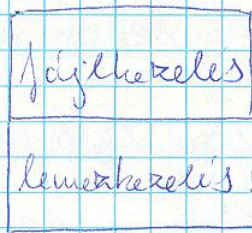 fájlkezelés
lemezkezelés